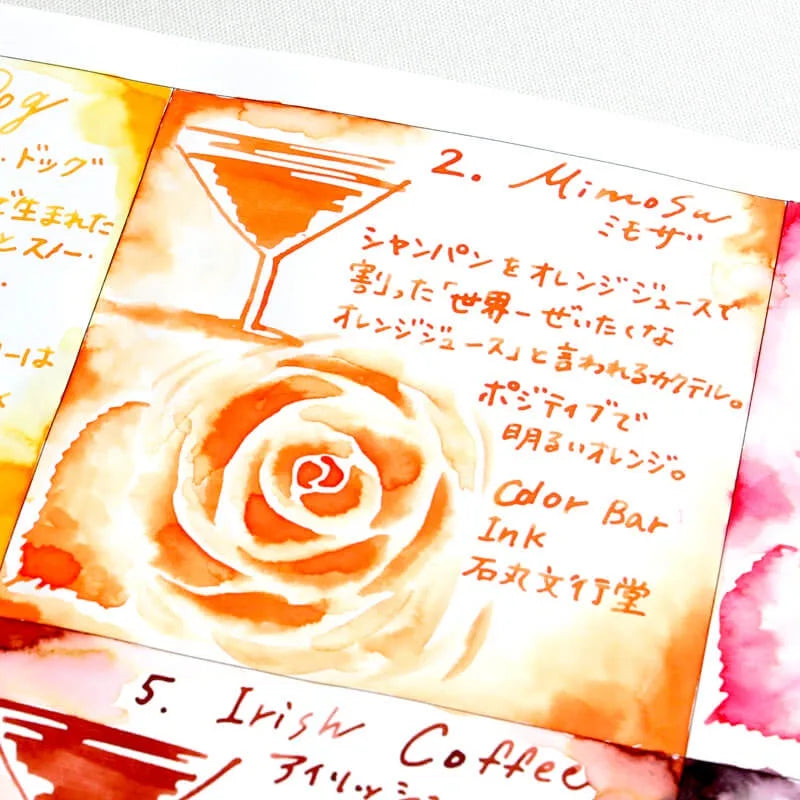 ・ドッグ
で生まれた
とスノー・
ーは
2. Mimosa
ミモザ
シャンパンをオレンジジュースで
割った「世界一ぜいたくな
オレンジジュース」と言われるカクテル。
ポジティブで
明るいオレンジ。
Color Bar
Ink
石丸文行堂
5. Irish Coffee
アイリッシ